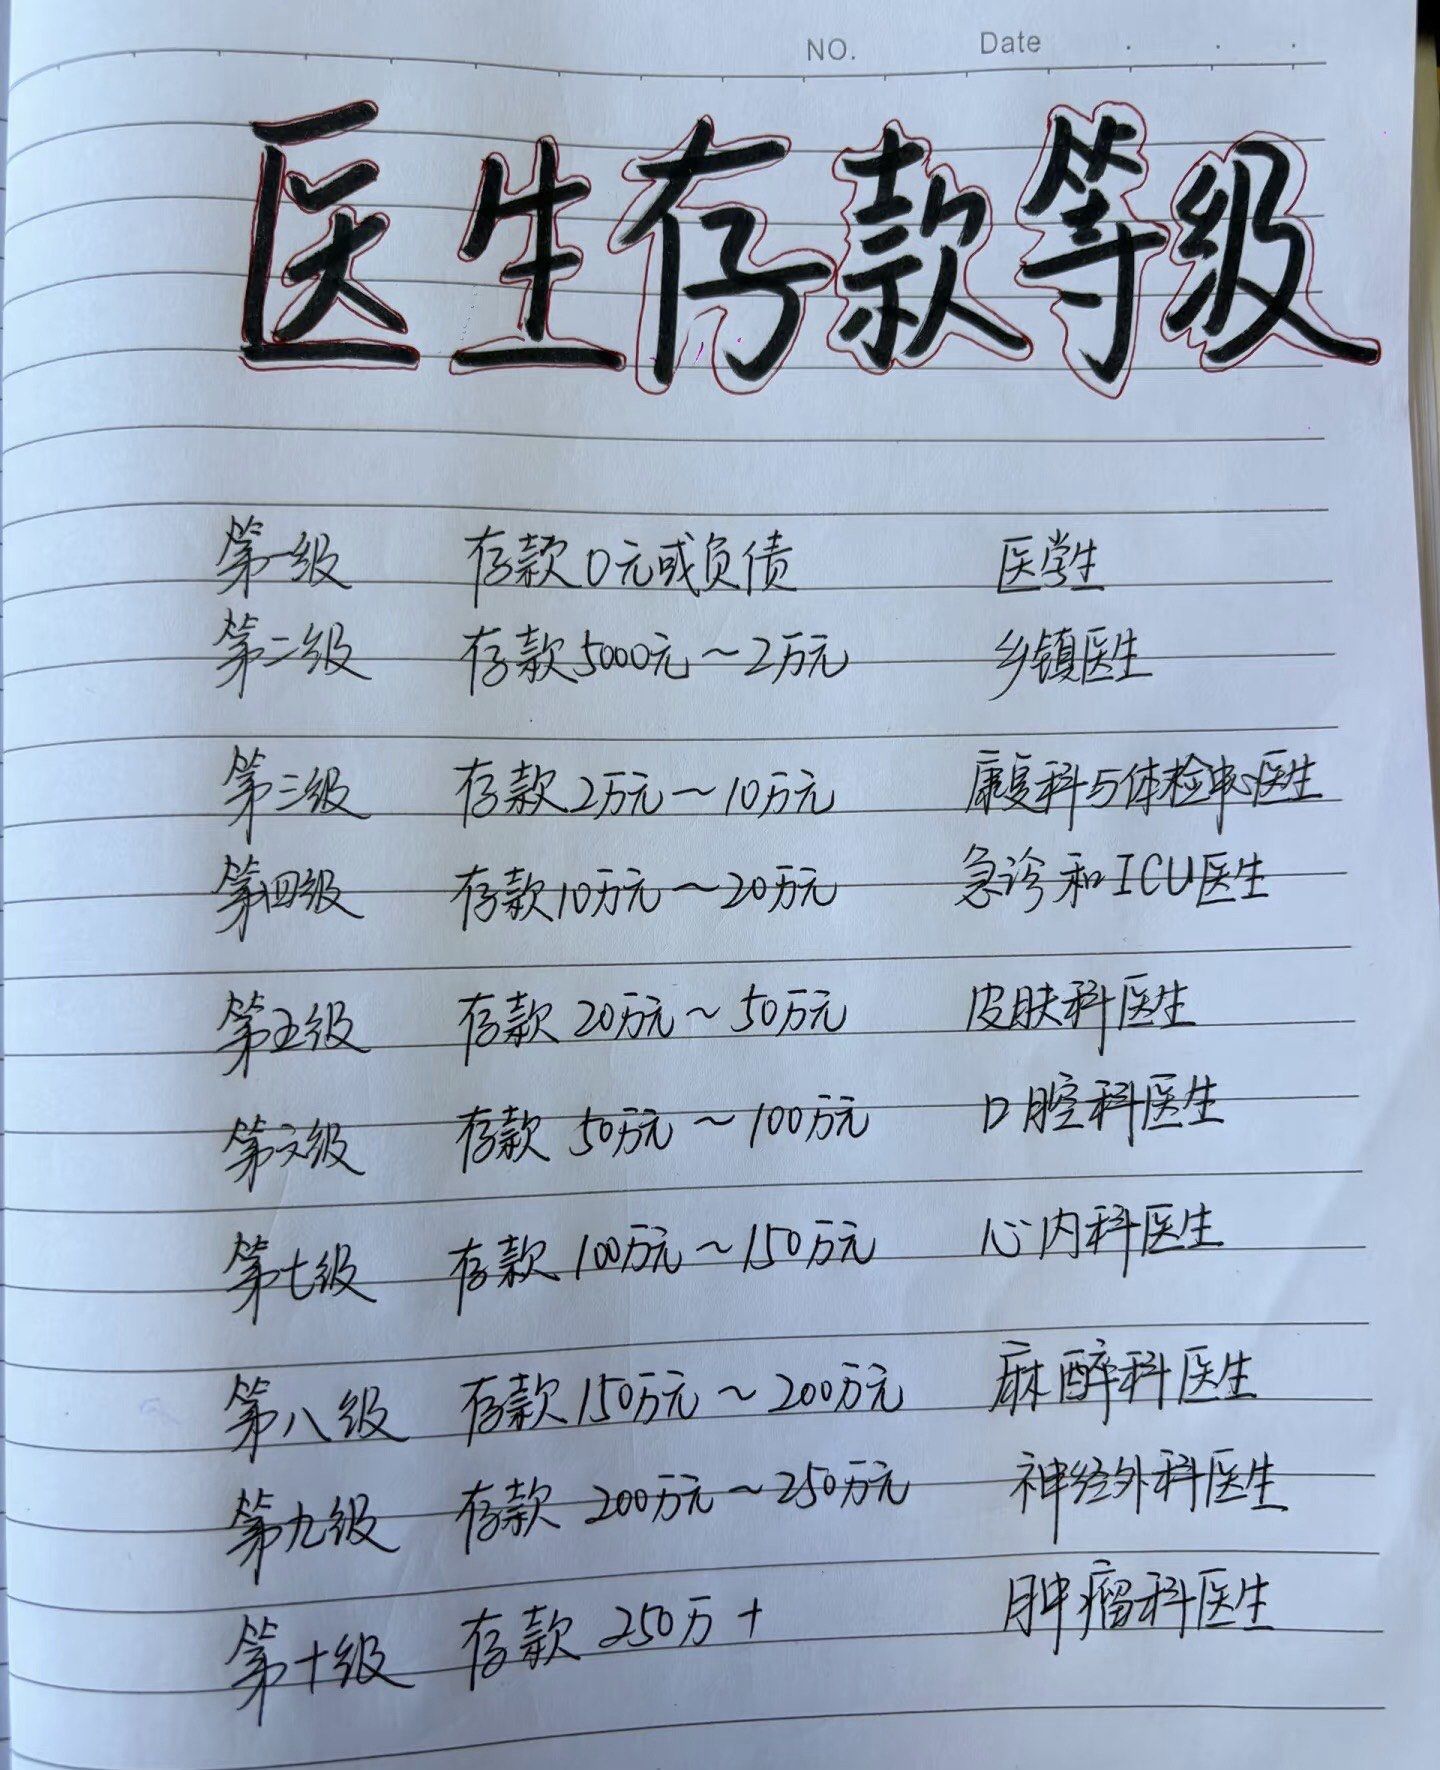 NO. Date
医生存款等级
第一级 存款0元或负债 医学生
第二级 存款5000元～2万元 乡镇医生
第三级 存款2万元～10万元 康复科与体检中心医生
第四级 存款10万元～20万元 急诊和ICU医生
第五级 存款20万元～50万元 皮肤科医生
第六级 存款50万元～100万元 口腔科医生
第七级 存款100万元～150万元 心内科医生
第八级 存款150万元～200万元 麻醉科医生
第九级 存款200万元～250万元 神经外科医生
第十级 存款250万+ 肿瘤科医生